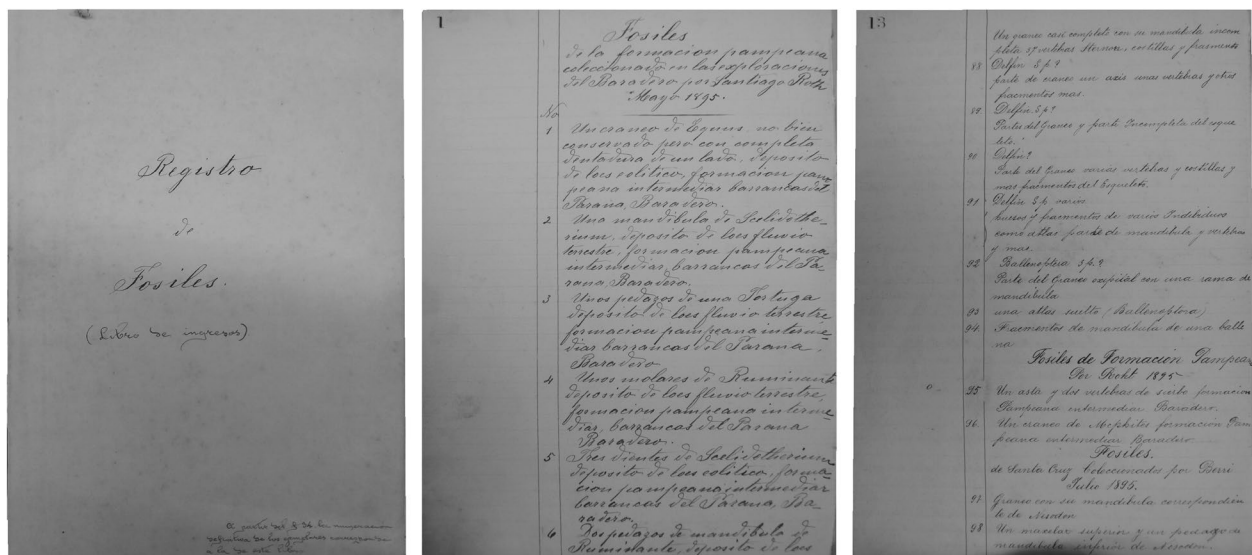 Registro
de
Fosiles.
(Libro de ingresos)
A partir del
1
Fosiles
de la formacion pampeana
coleccionado en las exploraciones
del Baradero por Santiago Roth
Mayo 1895.
No
1 Un craneo de Equus no bien
conservado pero con completa
dentadura de un lado, deposito
de loes eolitico, formacion pam
peana intermediar barrancas del
Parana, Baradero.
2 Una mandibula de Scelidothe-
rium, deposito de loes fluvio
terrestre, formacion pampeana
intermediar, barrancas del Pa-
rana, Baradero.
3 Unos pedazos de una Tortuga
deposito de loes fluvio terrestre
formacion pampeana interme-
diar barrancas del Parana,
Baradero
4 Unos molares de Ruminante
deposito de loes fluvio terrestre,
formacion pampeana interme-
diar, barrancas del Parana
Baradero.
5 Tres dientes de Scelidotherium
deposito de loes eolitico, forma-
cion pampeana intermediar
barrancas del Parana, Ba-
radero.
6 Dos pedazos de mandibula de
Rumistante, deposito de loes
13
Un craneo casi completo con su mandibula incom
pleta 37 vertebras Sternon, costillas y fragmentos
88 Delfin S.p?
parte de craneo un axis unas vertebras y otros
fracmentos mas.
89 Delfin S.p?
Partes del Craneo y parte Incompleta del esque
leto.
90 Delfin?
Parte del Craneo varias vertebras y costillas y
mas fracmentos del Esqueleto.
91 Delfin S.p. varios
huesos y fracmentos de varios Indibiduos
como atlas parte de mandibula y vertebras
y mas
92 Ballenoptera S.p.?
Parte del Craneo ocipital con una rama de
mandibula
93 una atlas suelto (Ballenoptera)
94. Fracmentos de mandibula de una balle
na
Fosiles de Formación Pampean
Por Roht 1895
95 Un asta y dos vertebras de sierbo formacion
Pampeana intermediar Baradero.
96. Un craneo de Mephites formación Pam
peana intermediar Baradero
Fosiles.
de Santa Cruz Coleccionados por Berri
Julio 1895.
97 Craneo con su mandibula correspondien
te de Nesodon
98 Un maxilar superior y un pedazo de
mandibula inferior de Nesodon